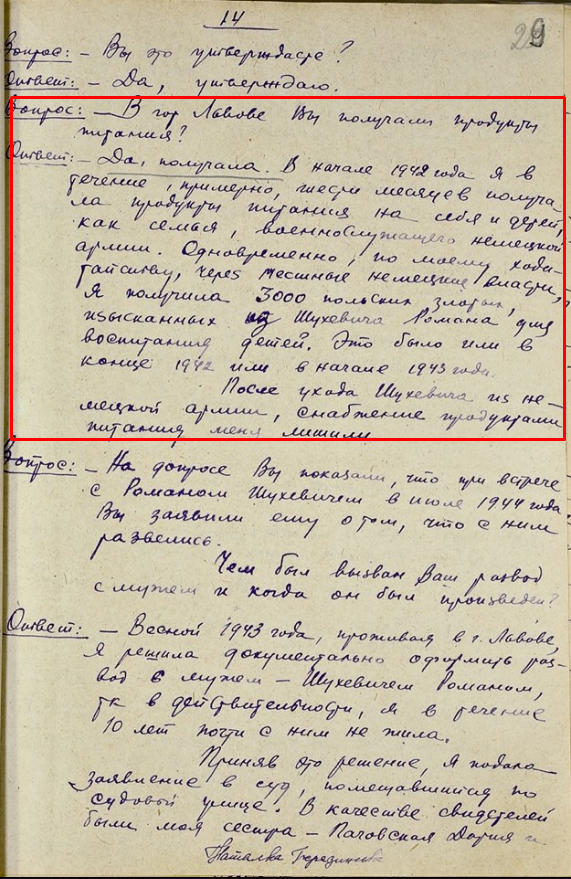 14
29
Вопрос: – Вы это утверждаете?
Ответ: – Да, утверждаю.
Вопрос: – В гор Львове Вы получали продукты
питания?
Ответ: – Да, получала. В начале 1942 года я в
течение, примерно, шести месяцев получа-
ла продукты питания на себя и детей,
как семья, военнослужащего немецкой
армии. Одновременно, по моему хода-
тайству, через местные немецкие власти,
Я получила 3000 польских злотых,
взысканных из Шухевича Романа, для
воспитания детей. Это было или в
конце 1942 или в начале 1943 года.
После ухода Шухевича из не-
мецкой армии, снабжение продуктами
питания меня лишили
Вопрос: – На допросе Вы показали, что при встрече
с Романом Шухевичем в июле 1944 года
Вы заявили ему о том, что с ним
развелись.
Чем был вызван Ваш развод
с мужем и когда он был произведен?
Ответ: – Весной 1943 года, проживая в г. Львове,
Я решила документально оформить раз-
вод с мужем – Шухевичем Романом,
тк в действительности, я в течение
10 лет почти с ним не жила.
Приняв это решение, я подала
заявление в суд, помещавшийся по
судовый улице. В качестве свидетелей
были моя сестра – Пачовская Дария и
Наталья Березинська